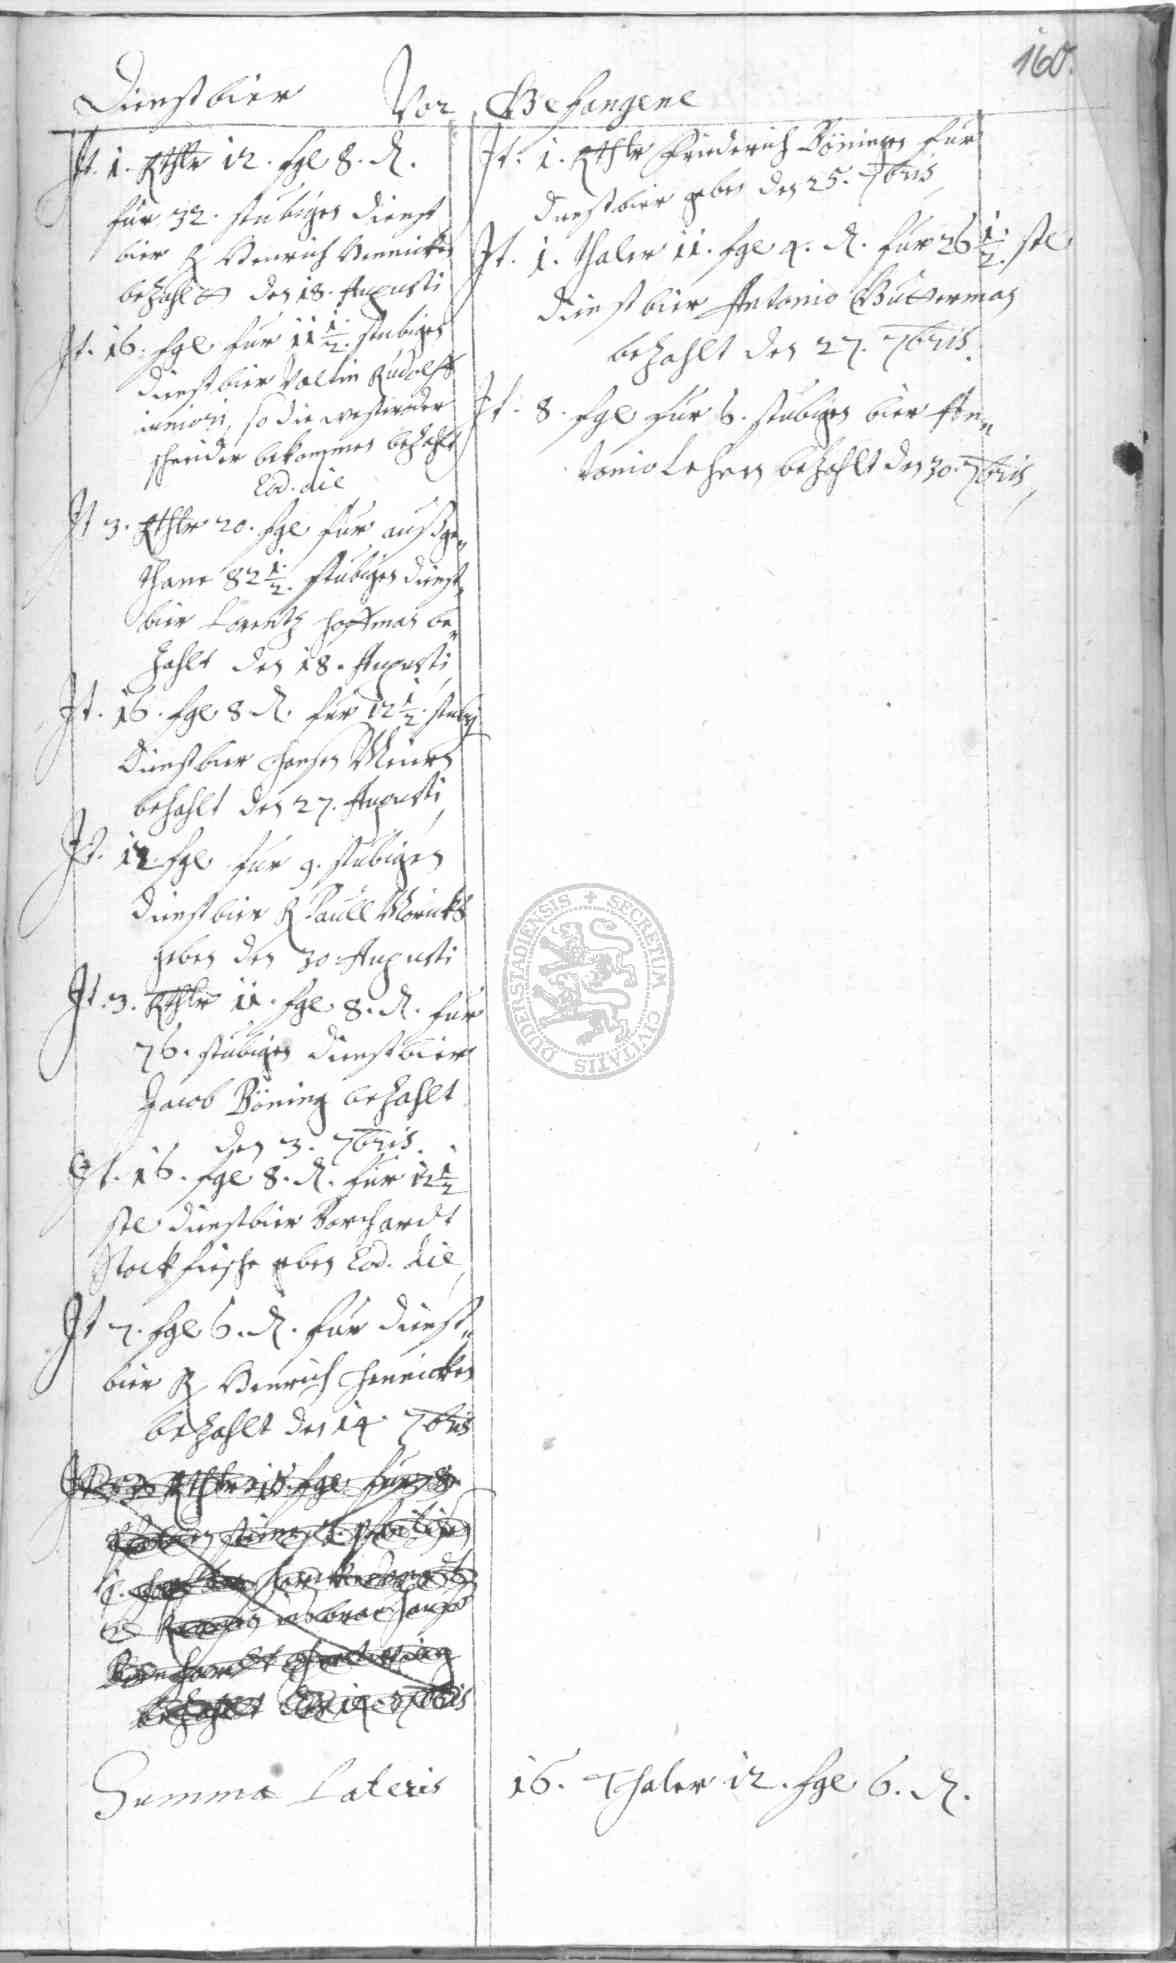 160.
Dienstbier Vor Gefangene
It. 1. Rthlr 12. fgl 8. d.
für 32. stübigen dienst
bier H Henrich Hennicken
bezahlt den 18. Augusti
It. 16. fgl für 11 1/2. stübigen
dienstbier Valtin Rudolff
iuniori, so die
schneider bekommen bezahlt
Eod. die
It 3. Rthlr 20. fgl für außge„
thane 82 1/2. stübigen dienst„
bier Lorentz Hoffman be„
zahlt den 18. Augusti
It. 16. fgl 8 d. für 12 1/2. stübig
dienstbier Hansen Meiern
bezahlt den 27. Augusti
It. 12. fgl für 9. stübigen
dienstbier H Paull
geben den 30. Augusti
It. 3. Rthlr 11. fgl 8. d. für
76. stübigen dienstbier
Jacob Böning bezahlt
den 3. 7bris.
It. 16. fgl 8. d. für 12 1/2
stl dienstbier Borchardt
Stockfische geben Eod. die
It 7. fgl 6. d. für dienst„
bier H Henrich Hennicken
bezahlt den 14. 7bris
It. Rthlr fgl für
bezahlt 7bris
It. 1. Rthlr Friederich Böningen für
dienstbier geben den 25. 7bris
It. 1. thaler 11. fgl 4. d. für 26 1/2. stl
dienstbier Antonio Gutterman
bezahlt den 27. 7bris.
It. 8. fgl für 6. stübigen bier An„
tonio Lehnen bezahlt den 30. 7bris,
Summa Lateris 16. Thaler 12. fgl 6. d.
SECRETUM CIVITATIS DUDERSTADIENSIS